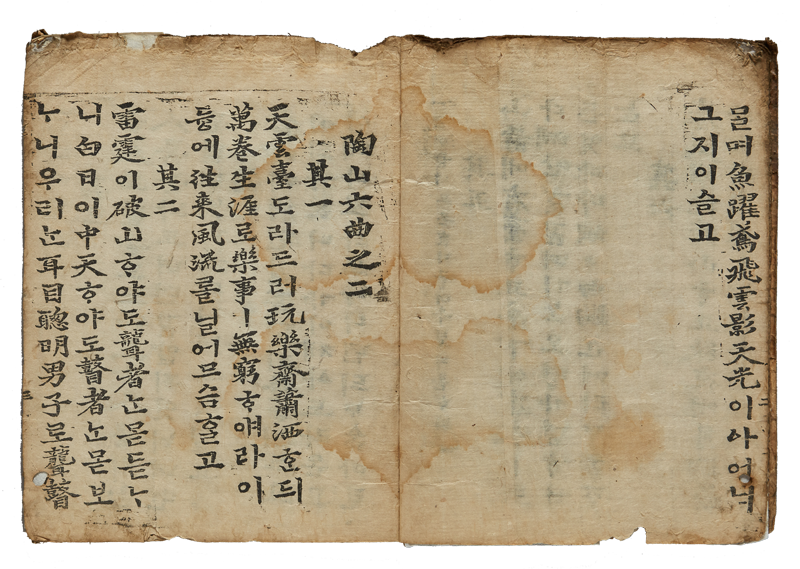 ᄆᆞᆯ며魚躍鳶飛雲影天光이아어늬
그지이슬고
二
陶山六曲之二
其一
天雲臺도라드러玩樂齋蕭洒ᄒᆞᆫᄃᆡ
萬卷生涯로樂事ㅣ無窮ᄒᆞ얘라이
듕에往來風流ᄅᆞᆯ닐어므슴ᄒᆞᆯ고
其二
雷霆이破山ᄒᆞ야도聾者ᄂᆞᆫ몯듣ᄂᆞ
니白日이中天ᄒᆞ야도瞽者ᄂᆞᆫ몯보
ᄂᆞ니우리ᄂᆞᆫ耳目聰明男子로聾瞽
三